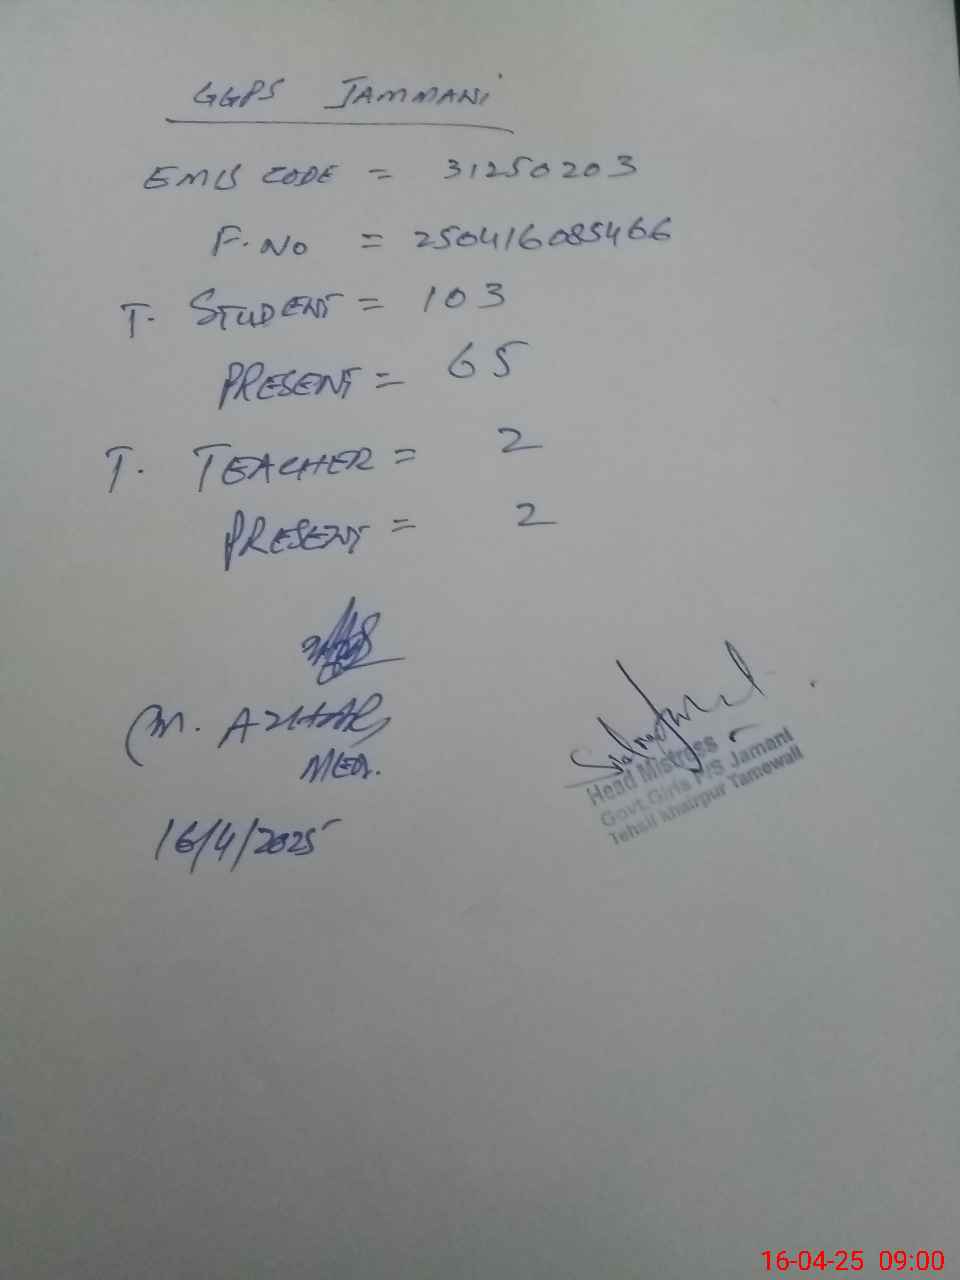 GGPS JAMMANI
EMIS CODE = 31250203
F.NO = 250416085466
T. STUDENT = 103
PRESENT = 65
T. TEACHER = 2
PRESENT = 2
(M. AZHAR)
MEA.
16/4/2025
Head Mistress
Govt.Girls P/S Jamani
Tehsil Khairpur Tamewali
16-04-25 09:00